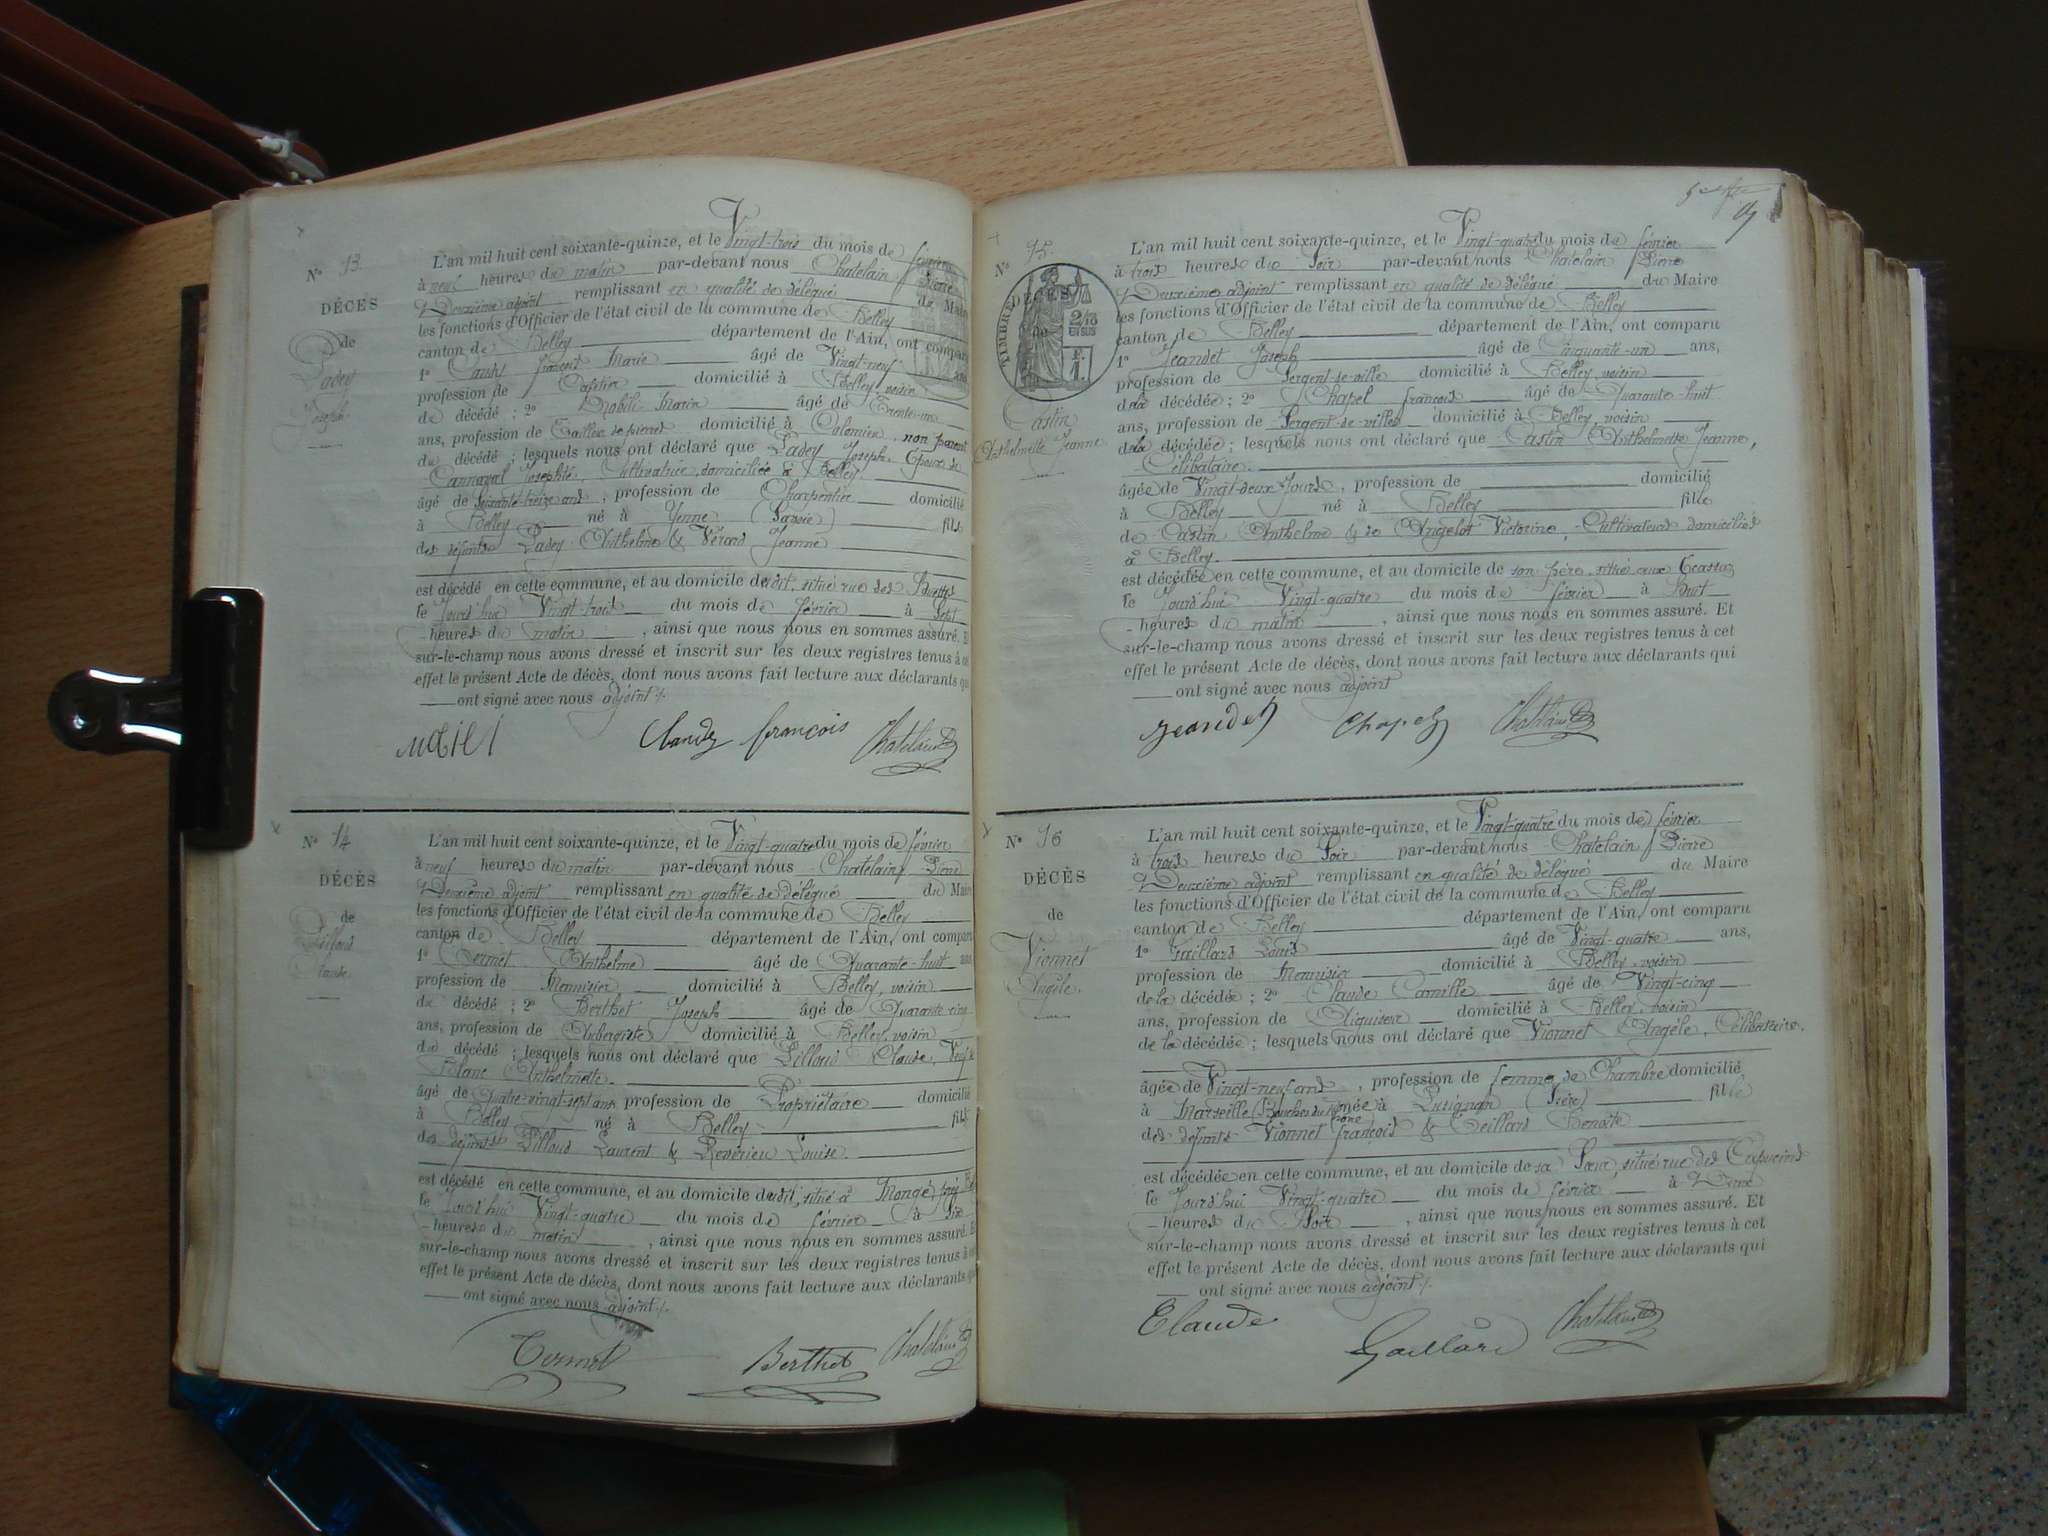 N° 13.
DÉCÈS
de
Ladey
Joseph.
L'an mil huit cent soixante-quinze, et le Vingt-trois du mois de février
à neuf heures du matin par-devant nous Chatelain Pierre
Deuxième adjoint remplissant en qualité de délégué du Maire
les fonctions d'Officier de l'état civil de la commune de Belley
canton de Belley département de l'Ain, ont comparu
1° François Marie âgé de Vingt-neuf ans,
profession de domicilié à Belley, voisin
du décédé ; 2° Marin âgé de Trente-un
ans, profession de Tailleur de pierres domicilié à Colomieu, non parent
du décédé ; lesquels nous ont déclaré que Ladey Joseph, Époux de
Josephte, Cultivatrice, domiciliée à Belley.
âgé de Soixante-treize ans, profession de Charpentier domicilié
à Belley né à Yenne (Savoie) fils
des défunts Ladey Anthelme & Jeanne
est décédé en cette commune, et au domicile du dit, situé rue des
le Jourd'hui Vingt-trois du mois de février à Sept
heures du matin, ainsi que nous nous en sommes assuré. Et
sur-le-champ nous avons dressé et inscrit sur les deux registres tenus à cet
effet le présent Acte de décès, dont nous avons fait lecture aux déclarants qui
ont signé avec nous adjoint
françois Chatelain
N° 14
DÉCÈS
de
Lilloud
Claude
L'an mil huit cent soixante-quinze, et le Vingt-quatre du mois de février
à neuf heures du matin par-devant nous Chatelain Pierre
Deuxième adjoint remplissant en qualité de délégué du Maire
les fonctions d'Officier de l'état civil de la commune de Belley
canton de Belley département de l'Ain, ont comparu
1° Anthelme âgé de Quarante-huit ans
profession de Menuisier domicilié à Belley, voisin
du décédé ; 2° Berthet Joseph âgé de Quarante-cinq
ans, profession de Aubergiste domicilié à Belley, voisin
du décédé ; lesquels nous ont déclaré que Claude, Veuf de
Blanc Anthelmette.
âgé de Quatre-vingt-sept ans profession de Propriétaire domicilié
à Belley né à Belley fils
des défunts Laurent & Louise.
est décédé en cette commune, et au domicile du dit, situé à
le Jourd'hui Vingt-quatre du mois de février à Six
heures du matin, ainsi que nous nous en sommes assuré. Et
sur-le-champ nous avons dressé et inscrit sur les deux registres tenus à cet
effet le présent Acte de décès, dont nous avons fait lecture aux déclarants qui
ont signé avec nous adjoint
Berthet Chatelain
N° 15.
TIMBRE DE
2/10 EN SUS
DÉCÈS
de
Castin
Anthelmette Jeanne
L'an mil huit cent soixante-quinze, et le Vingt-quatre du mois de février
à trois heures du Soir par-devant nous Chatelain Pierre
Deuxième adjoint remplissant en qualité de délégué du Maire
les fonctions d'Officier de l'état civil de la commune de Belley
canton de Belley département de l'Ain, ont comparu
1° Jeandet Joseph âgé de Cinquante-un ans,
profession de Sergent-de-ville domicilié à Belley, voisin
de la décédée ; 2° Chapel françois âgé de Quarante-huit
ans, profession de Sergent-de-ville domicilié à Belley, voisin
de la décédée ; lesquels nous ont déclaré que Castin Anthelmette Jeanne,
Célibataire.
âgée de Vingt-deux Jours, profession de domicilié
à Belley né à Belley fille
de Castin Anthelme & de Angelot Victorine, Cultivateurs domiciliés
à Belley.
est décédée en cette commune, et au domicile de son père, situé aux
le Jourd'hui Vingt-quatre du mois de février à Huit
heures du matin, ainsi que nous nous en sommes assuré. Et
sur-le-champ nous avons dressé et inscrit sur les deux registres tenus à cet
effet le présent Acte de décès, dont nous avons fait lecture aux déclarants qui
ont signé avec nous adjoint
Jeandet Chapel Chatelain
N° 16
DÉCÈS
de
Vionnet
Angèle.
L'an mil huit cent soixante-quinze, et le Vingt-quatre du mois de février
à trois heures du Soir par-devant nous Chatelain Pierre
Deuxième adjoint remplissant en qualité de délégué du Maire
les fonctions d'Officier de l'état civil de la commune de Belley
canton de Belley département de l'Ain, ont comparu
1° Gaillard Louis âgé de Vingt-quatre ans,
profession de Menuisier domicilié à Belley, voisin
de la décédée ; 2° Claude Camille âgé de Vingt-cinq
ans, profession de domicilié à Belley, voisin
de la décédée ; lesquels nous ont déclaré que Vionnet Angèle, Célibataire.
âgée de Vingt-neuf ans, profession de femme de Chambre domicilié
à Marseille (Bouches du Rhône) née à (Isère) fille
des défunts Vionnet françois & Benoîte
est décédée en cette commune, et au domicile de sa Sœur, situé rue des Capucins
le Jourd'hui Vingt-quatre du mois de février à Deux
heures du Soir, ainsi que nous nous en sommes assuré. Et
sur-le-champ nous avons dressé et inscrit sur les deux registres tenus à cet
effet le présent Acte de décès, dont nous avons fait lecture aux déclarants qui
ont signé avec nous adjoint
Claude Gaillard Chatelain